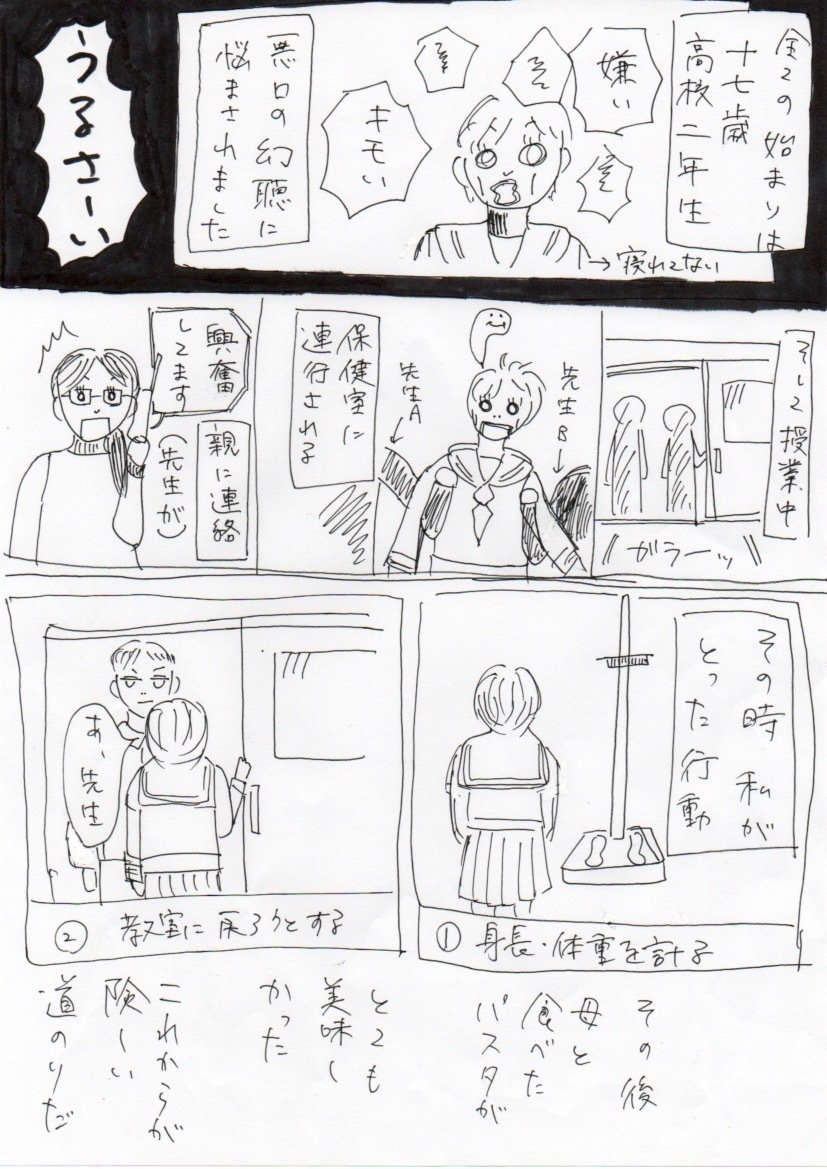 全ての始まりは
十七歳
高校二年生
嫌い
キモい
→寝れてない
悪口の幻聴に
悩まされました
うるさーい
そして授業中
ガラーッ
先生B
先生A
保健室に
連行される
興奮
してます
親に連絡
(先生が)
その時 私が
とった行動
① 身長・体重を計る
あ、先生
② 教室に戻ろうとする
その後
母と
食べた
パスタが
とても
美味し
かった
これからが
険しい
道のりだ